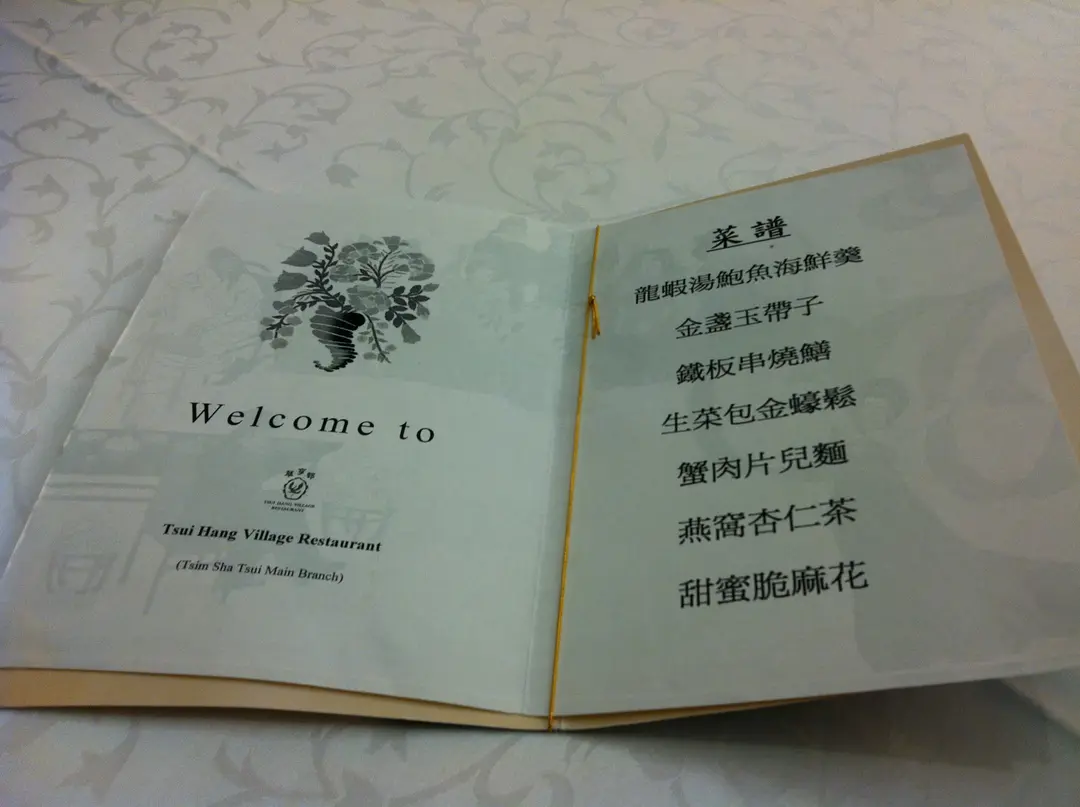 Welcome to
翠亨邨
TSUI HANG VILLAGE
RESTAURANT
Tsui Hang Village Restaurant
(Tsim Sha Tsui Main Branch)
菜譜
龍蝦湯鮑魚海鮮羹
金盞玉帶子
鐵板串燒鱔
生菜包金蠔鬆
蟹肉片兒麵
燕窩杏仁茶
甜蜜脆麻花